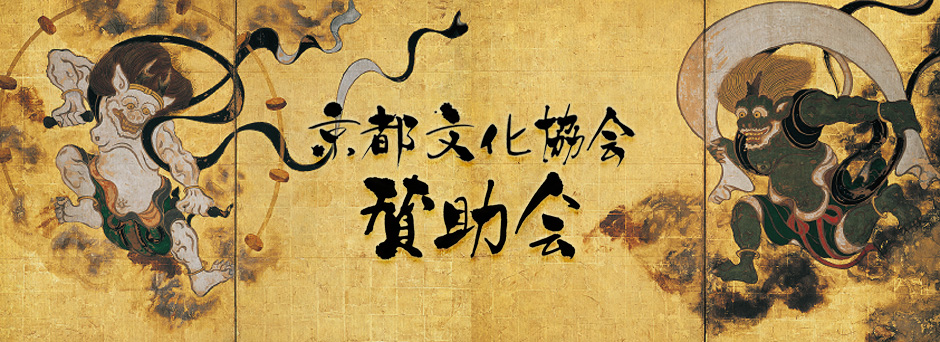 京都文化協会
賛助会